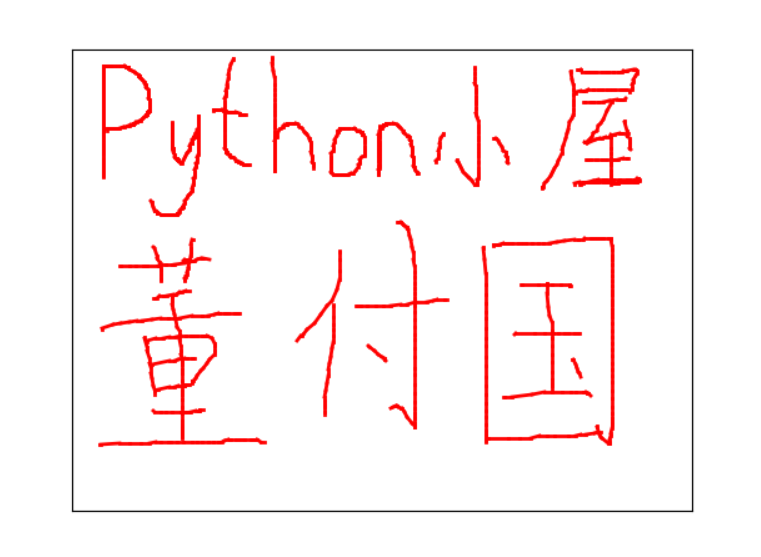 Python小屋
董付国